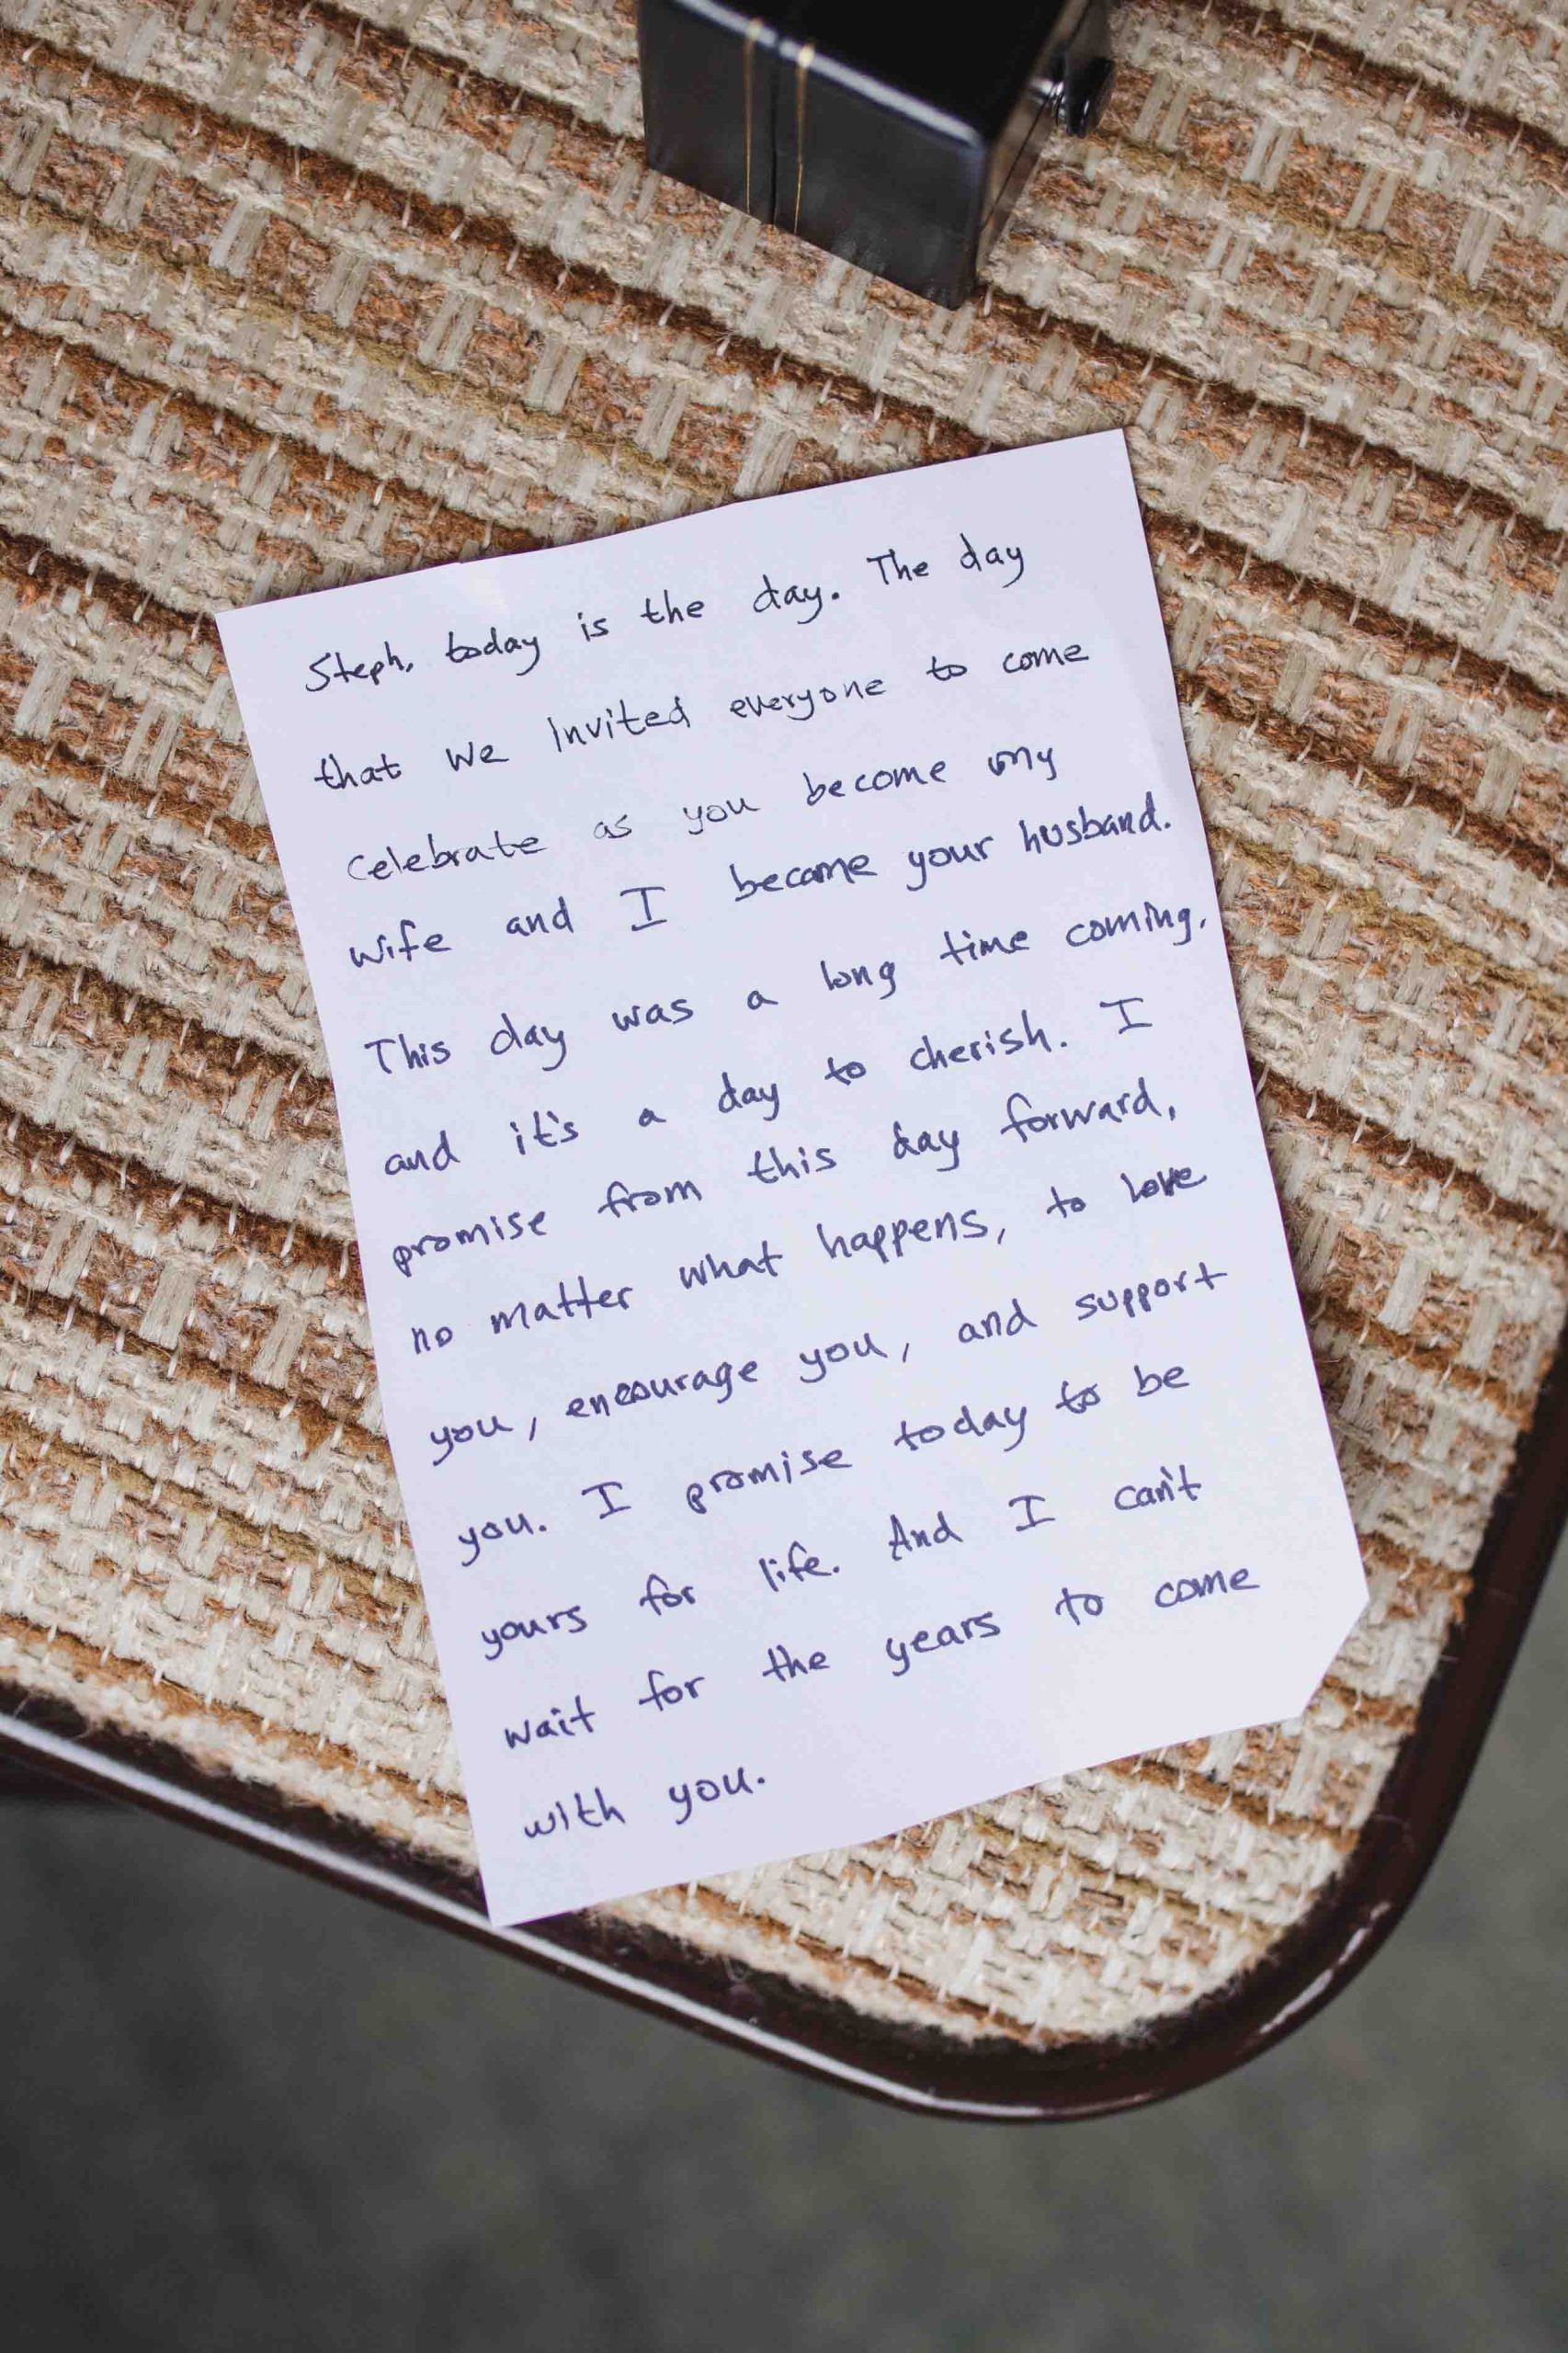 Steph, today is the day. The day
that we invited everyone to come
celebrate as you become my
wife and I become your husband.
This day was a long time coming,
and it's a day to cherish. I
promise from this day forward,
no matter what happens, to love
you, encourage you, and support
you. I promise today to be
yours for life. And I can't
wait for the years to come
with you.